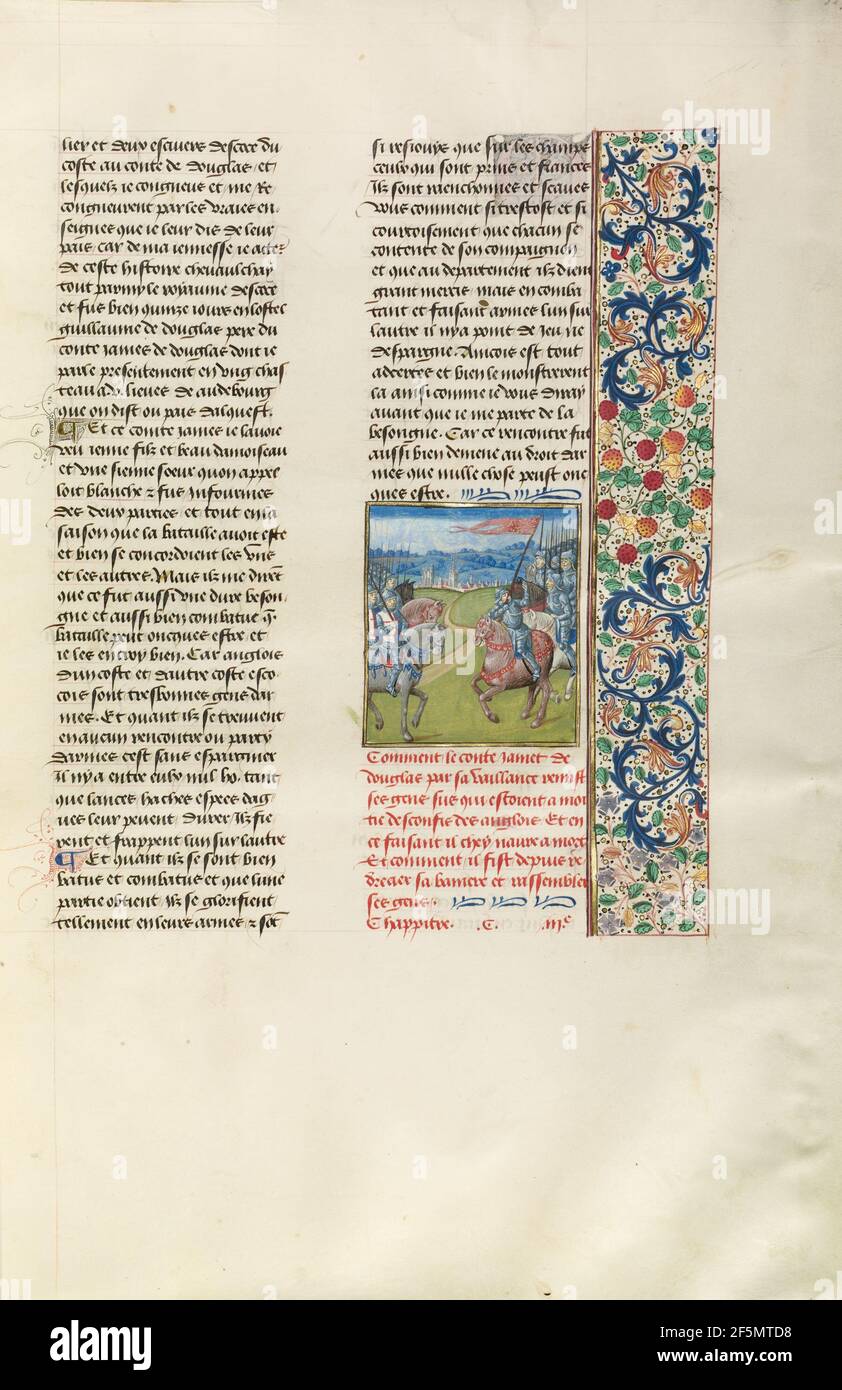 lier et deux escuiers descoce du
coste au conte de douglas et
lesquelz ie congneus et me re
congneurent par les vraies en
seignes que ie leur dis de leur
pais car de ma iennesse ie acter
de ceste histoire cheuaulchay
tout parmy le royaume descoce
et fus bien quinze iours en lostel
guillaume de douglas pere du
conte james de douglas dont ie
parle presentement en vng chas
teau a .v. lieues de
que on dist ou pais dalquest.
Et ce comte james ie lauoie
veu ienne filz et beau damoiseau
et vne sienne soeur quon appel
loit blanche & fus infourmes
des deux parties et tout en la
saison que la bataille auoit este
et bien se concordoient les vns
et les autres. Mais ilz me dirēt
que ce fut aussi vne dure beson
gne et aussi bien combatue q̄
bataille peut oncques estre et
ie les en croy bien. Car anglois
dun coste et dautre coste esco
cois sont tresbonnes gens dar
mes. Et quant ilz se treuuent
en aucun rencontre ou party
darmes cest sans espargnier
Il ny a entre eulx nul ho. tant
que lances haches espees dag
ues leur peuent durer ilz fie
rent et frappent lun sur lautre
Et quant ilz se sont bien
batus et combatus et que lune
partie obtient ilz se glorifient
tellement en leurs armes & sōt
si resiouys que sur les champs
ceulx qui sont prins et fiances
Ilz sont raenchonnes et scaues
vous comment si trestost et si
courtoisement que chacun se
contente de son compaignon
et que au departement ilz dient
grant mercis mais en comba
tant et faisant armes lun sur
lautre il ny a point de jeu ne
despargne. Aincois est tout
adcertes et bien le monstrerent
la ainsi comme ie vous diray
auant que ie me parte de la
besongne. Car ce rencontre fut
aussi bien demene au droit dar
mes que nulle chose peust onc
ques estre.
Comment le conte jamet de
douglas par sa vaillance remist
ses gens sus qui estoient a moi
tie desconfis des anglois Et en
ce faisant il chey naure a mort
Et comment il fist depuis re
drecier sa baniere et rassembler
ses gens.
Chappitre. .C. .iiiᵉ
alamy
Image ID: 2F5MTD8
www.alamy.com